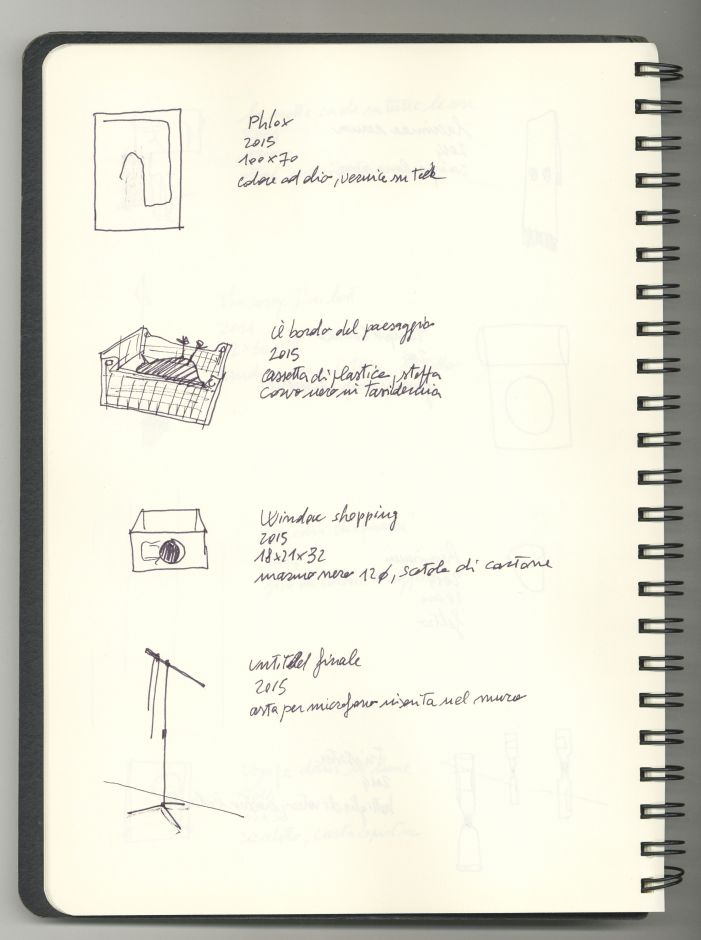 Phlox
2015
100x70
colore ad olio, vernice su tela
il bordo del paesaggio
2015
cassetta di plastica, stoffa
corvo nero in tassidermia
Window shopping
2015
18x21x32
marmo nero 12ø, scatola di cartone
untitled finale
2015
asta per microfono inserita nel muro